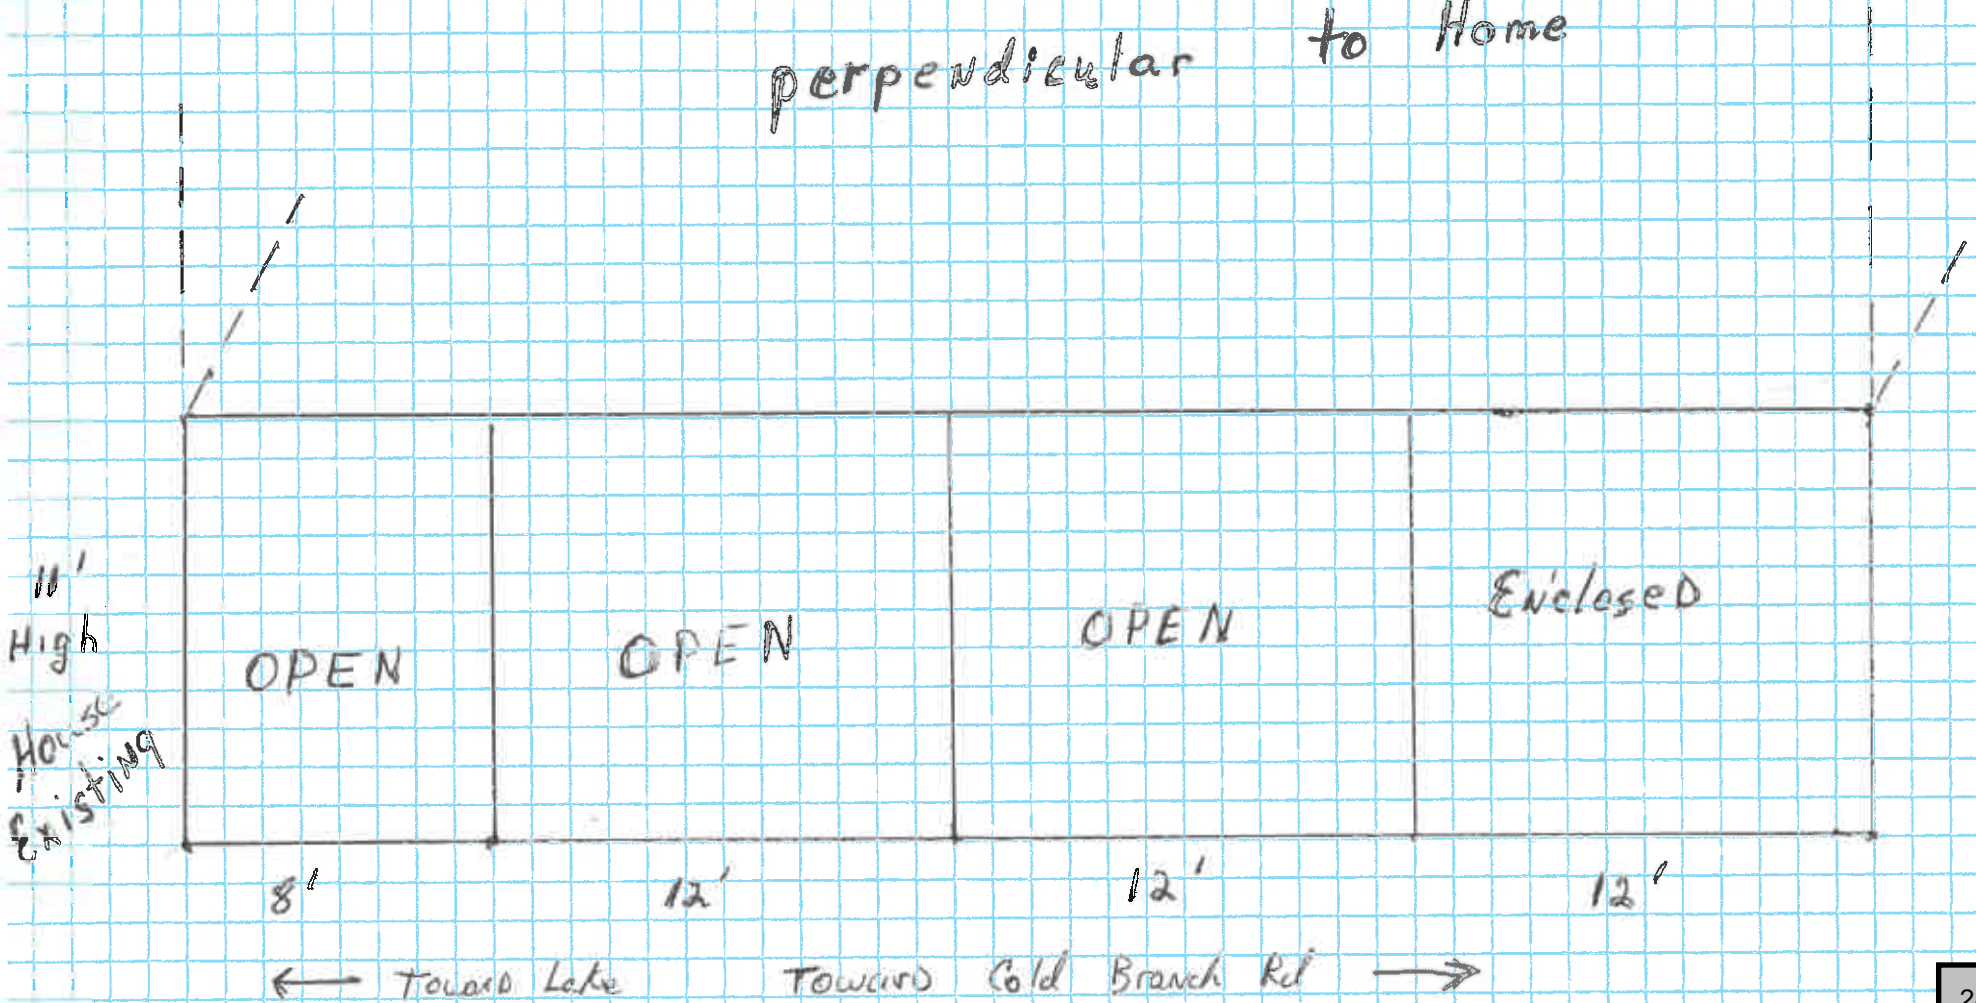 perpendicular to Home
11'
High
House
Existing
OPEN
OPEN
OPEN
EncloseD
8'
12'
12'
12'
← TowarD Lake TowarD Cold Branch Rd →
2